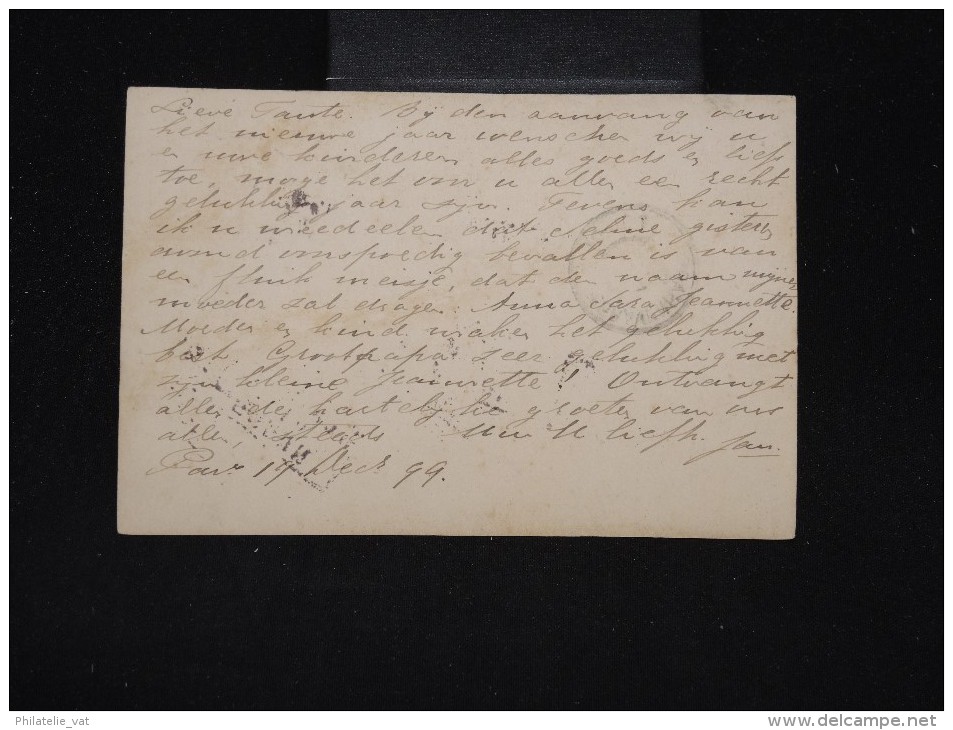 Lieve Tante. Bij den aanvang van
het nieuwe jaar wenschen wij u
en uwe kinderen alles goeds en liefs
toe, moge het om u allen een recht
gelukkig jaar zijn. Tevens kan
ik u meedeelen dat Seline gisteren
avond voorspoedig bevallen is van
een flink meisje, dat den naam mijner
moeder zal dragen. Anna Sara Jeannette.
Moeder en kind maken het gelukkig
best. Grootpapa zeer gelukkig met
zijn kleine Jeannette! Ontvangt
allen de hartelijke groeten van ons
allen, steeds Uw U liefh. Jan.
Par. 19 Decr 99.
Philatelie_vat
www.delcampe.net